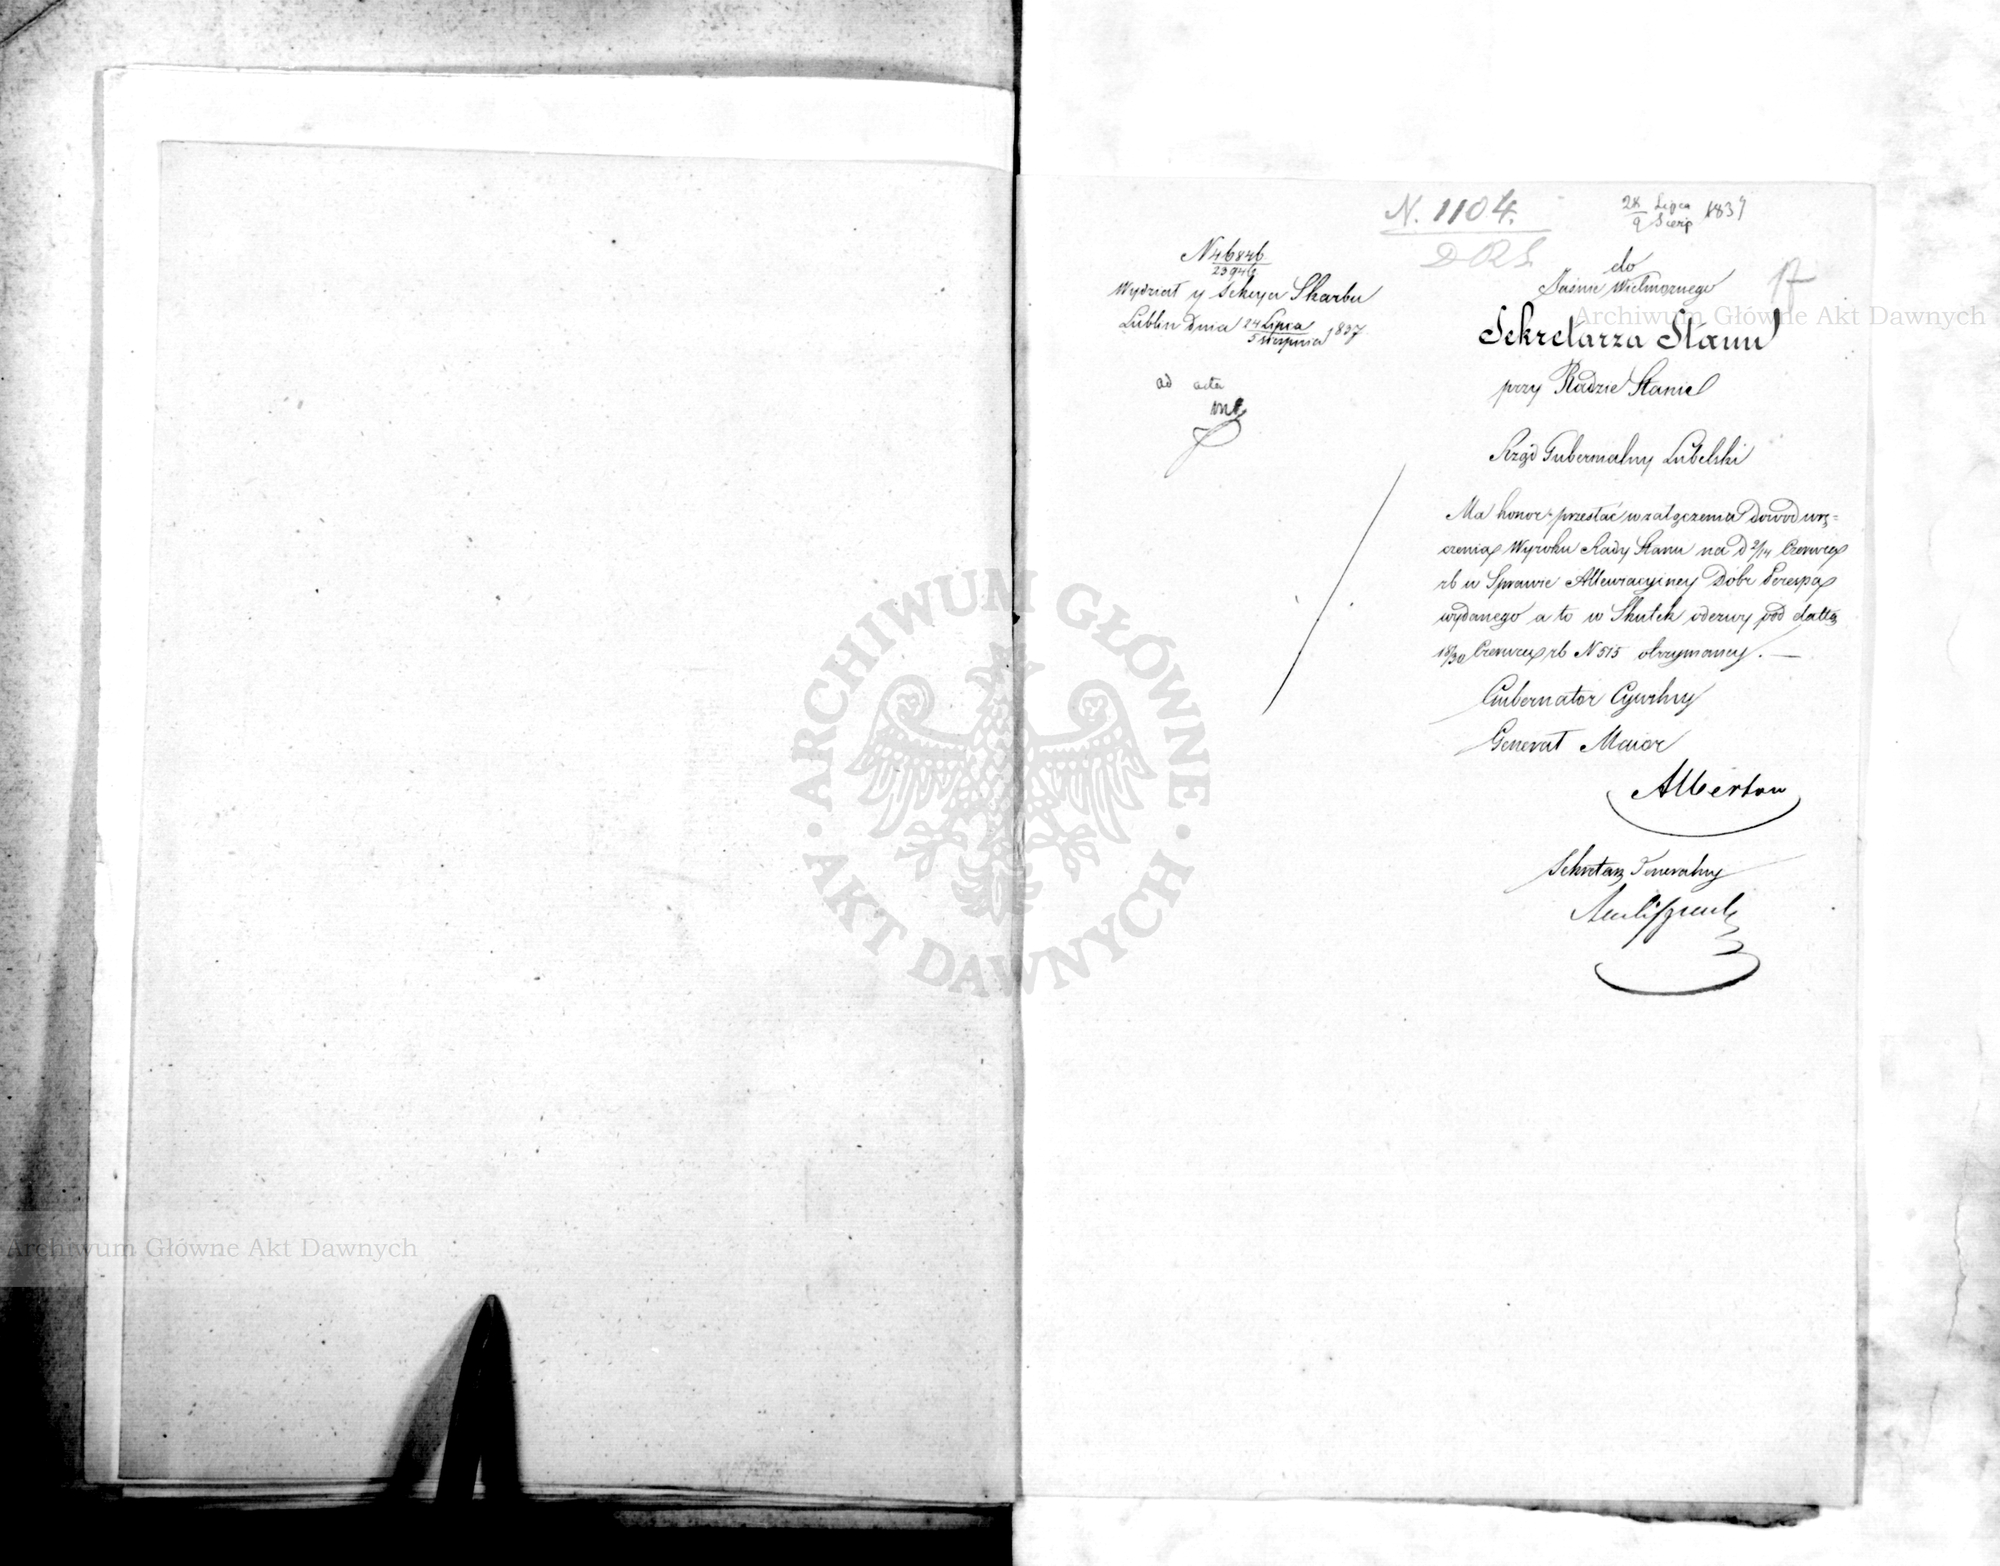 N. 1104.
28 Lipca
9 Sierp 1837
D R S.
17
N 46846
23946
Wydział y Sekcya Skarbu
Lublin dnia 24 Lipca
5 sierpnia 1837
ad acta
do
Jaśnie Wielmożnego
Sekretarza Stanu
przy Radzie Stanu
Rząd Gubernialny Lubelski
Ma honor przesłać w załączeniu dowód wrę=
czenia Wyroku Rady Stanu na d 2/14 Czerwca
rb w Sprawie Allewiacyiney Dóbr Perespa
wydanego a to w Skutek odezwy pod dattą
18/30 Czerwca rb N 515 otrzymaney. —
Gubernator Cywilny
Generał Maior
Albertow
Sekretarz Generalny
ARCHIWUM GŁÓWNE
AKT DAWNYCH
Archiwum Główne Akt Dawnych
Archiwum Główne Akt Dawnych